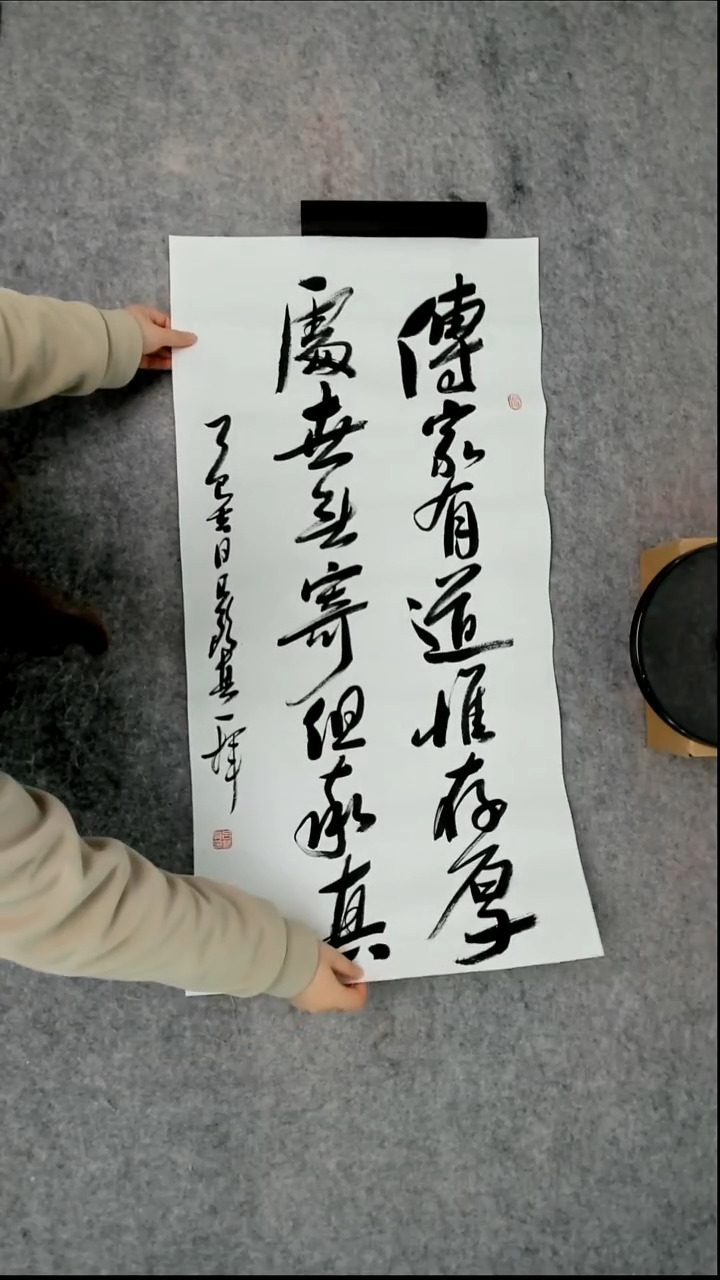 傳家有道惟存厚
處世無寄但率真
乙巳吉日